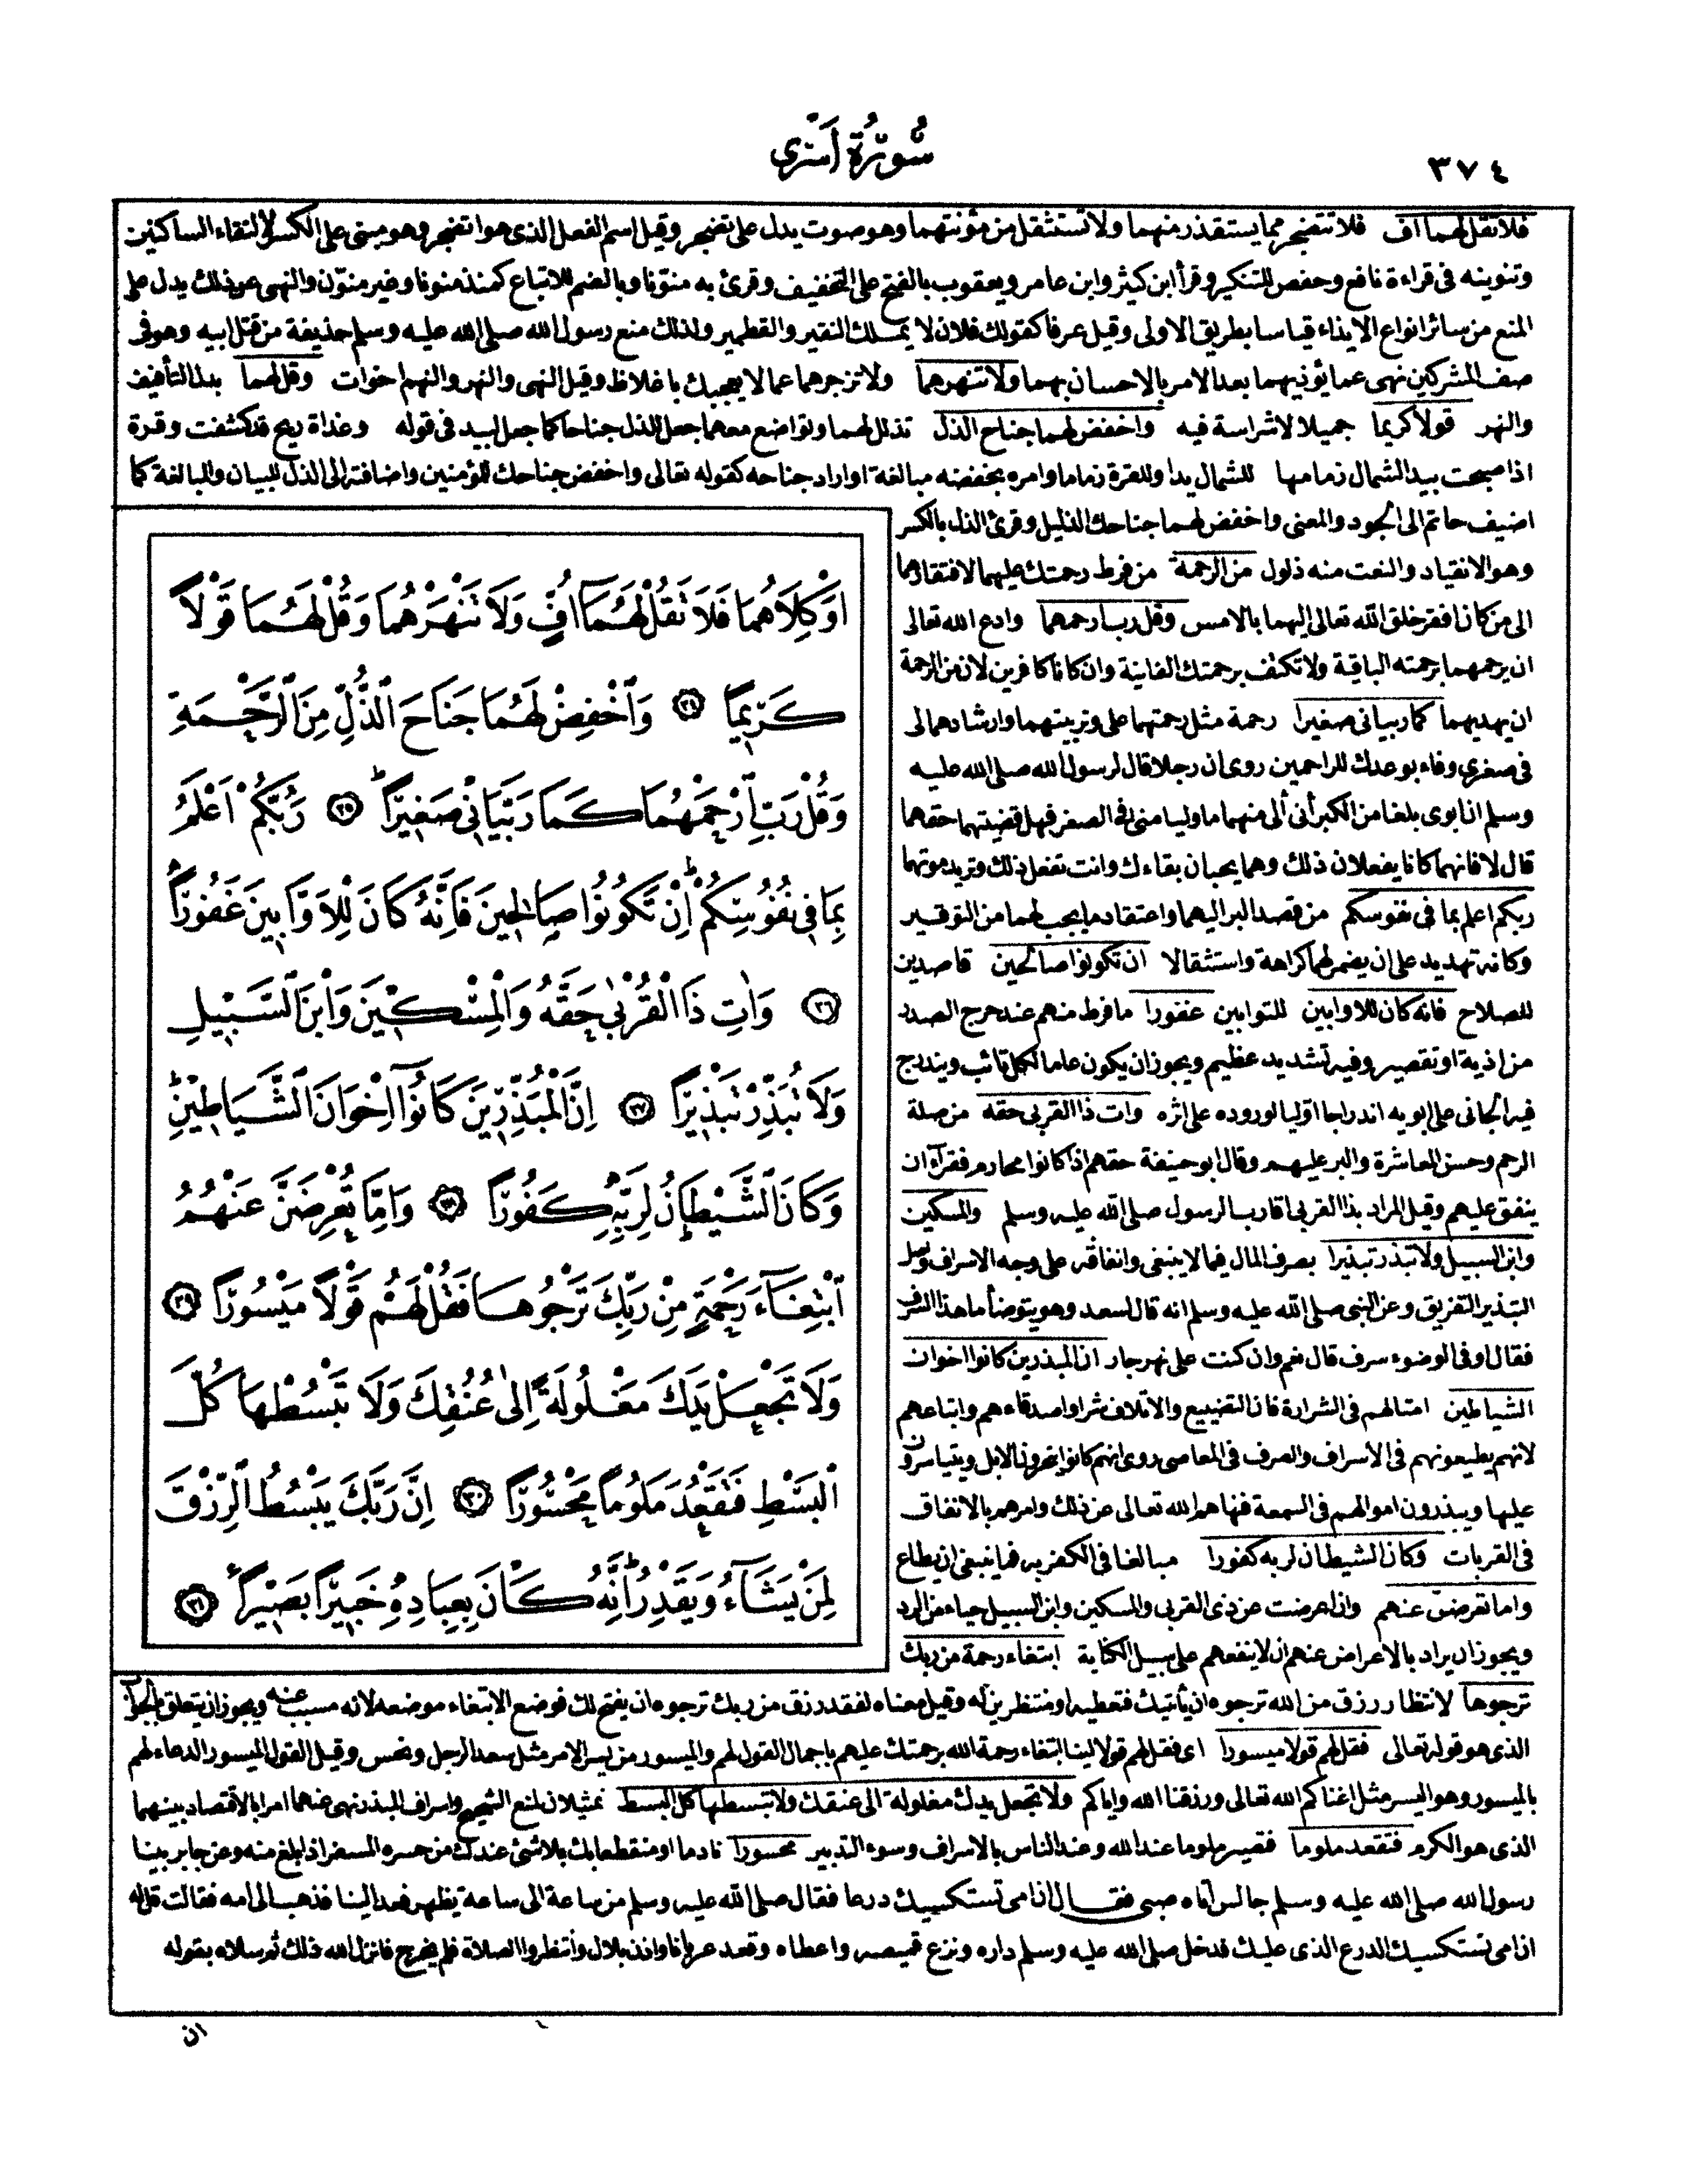 ٣٧٤
سُورَةُ اَسْرٰى
فلا تقل لهما اف فلا تتضجر مما يستقذر منهما ولا تستثقل من مؤنتهما وهو صوت يدل على تضجر وقيل اسم الفعل الذى هو اتضجر وهو مبنى على الكسر لالتقاء الساكنين
وتنوينه فى قراءة نافع وحفص للتنكير وقرأ ابن كثير وابن عامر ويعقوب بالفتح على التخفيف وقرئ به منوّنا وبالضم للاتباع كمنذ منونا وغير منوّن والنهى عن ذلك يدل على
المنع من سائر انواع الايذاء قياسا بطريق الاولى وقيل عرفا كقولك فلان لا يملك النقير والقطمير ولذلك منع رسول الله صلى الله عليه وسلم حذيفة من قتل ابيه وهو فى
صف المشركين نهى عما يؤذيهما بعد الامر بالاحسان بهما ولا تنهرهما ولا تزجرهما عما لا يعجبك باغلاظ وقيل النهى والنهر والنهم اخوات وقل لهما بدل التأفيف
والنهر قولا كريما جميلا لا شراسة فيه واخفض لهما جناح الذل تذلل لهما وتواضع معهما جعل للذل جناحا كما جعل لبيد فى قوله وغداة ريح قد كشفت وقرة
اذ اصبحت بيد الشمال زمامها للشمال يدا وللقرة زماما وامره بخفضه مبالغة او اراد جناحه كقوله تعالى واخفض جناحك للمؤمنين واضافته الى الذل للبيان والمبالغة كما
اضيف حاتم الى الجود والمعنى واخفض لهما جناحك الذليل وقرئ الذل بالكسر
وهو الانقياد والنعت منه ذلول من الرحمة من فرط رحمتك عليهما لافتقارهما
الى من كان افقر خلق الله تعالى اليهما بالامس وقل رب ارحمهما وادع الله تعالى
ان يرحمهما برحمته الباقية ولا تكتف برحمتك الفانية وان كانا كافرين لان من الرحمة
ان يهديهما كما ربيانى صغيرا رحمة مثل رحمتهما على وتربيتهما وارشادهما لى
فى صغرى وفاء بوعدك للراحمين روى ان رجلا قال لرسول الله صلى الله عليه
وسلم ان ابوى بلغا من الكبر أنى ألى منهما ما وليا منى فى الصغر فهل قضيتهما حقهما
قال لا فانهما كانا يفعلان ذلك وهما يحبان بقاءك وانت تفعل ذلك وتريد موتهما
ربكم اعلم بما فى نفوسكم من قصد البر اليهما واعتقاد ما يجب لهما من التوقير
وكانه تهديد على ان يضمر لهما كراهة واستثقالا ان تكونوا صالحين قاصدين
للصلاح فانه كان للاوابين للتوابين غفورا ما فرط منهم عند حرج الصدر
من اذية او تقصير وفيه تشديد عظيم ويجوز ان يكون عاما لكل تائب ويندرج
فيه الجانى على ابويه اندراجا اوّليا لوروده على اثره وات ذا القربى حقه من صلة
الرحم وحسن المعاشرة والبر عليهم وقال ابو حنيفة حقهم اذا كانوا محارم فقراء ان
ينفق عليهم وقيل المراد بذا القربى اقارب الرسول صلى الله عليه وسلم والمسكين
وابن السبيل ولا تبذر تبذيرا بصرف المال فيما لا ينبغى وانفاقه على وجه الاسراف واصل
التبذير التفريق وعن النبى صلى الله عليه وسلم انه قال لسعد وهو يتوضأ ما هذا السرف
فقال اوفى الوضوء سرف قال نعم وان كنت على نهر جار ان المبذرين كانوا اخوان
الشياطين امثالهم فى الشرارة فان التضييع والاتلاف شر او اصدقاءهم واتباعهم
لانهم يطيعونهم فى الاسراف والصرف فى المعاصى روى انهم كانوا ينحرون الابل ويتياسرون
عليها ويبذرون اموالهم فى السمعة فنهاهم الله تعالى عن ذلك وامرهم بالانفاق
فى القربات وكان الشيطان لربه كفورا مبالغا فى الكفر به فما ينبغى ان يطاع
واما تعرضن عنهم وان اعرضت عن ذى القربى والمسكين وابن السبيل حياء من الرد
ويجوز ان يراد بالاعراض عنهم ان لا ينفعهم على سبيل الكناية ابتغاء رحمة من ربك
اَوْ كِلَاهُمَا فَلَا تَقُلْ لَهُمَٓا اُفٍّ وَلَا تَنْهَرْهُمَا وَقُلْ لَهُمَا قَوْلًا
كَرِيمًا ﴿٢٤﴾ وَاخْفِضْ لَهُمَا جَنَاحَ الذُّلِّ مِنَ الرَّحْمَةِ
وَقُلْ رَبِّ ارْحَمْهُمَا كَمَا رَبَّيَانِى صَغِيرًا ﴿٢٥﴾ رَبُّكُمْ اَعْلَمُ
بِمَا فِى نُفُوسِكُمْ اِنْ تَكُونُوا صَالِحِينَ فَاِنَّهُ كَانَ لِلْاَوَّابِينَ غَفُورًا
﴿٢٦﴾ وَاٰتِ ذَا الْقُرْبٰى حَقَّهُ وَالْمِسْكِينَ وَابْنَ السَّبِيلِ
وَلَا تُبَذِّرْ تَبْذِيرًا ﴿٢٧﴾ اِنَّ الْمُبَذِّرِينَ كَانُٓوا اِخْوَانَ الشَّيَاطِينِ
وَكَانَ الشَّيْطَانُ لِرَبِّهِ كَفُورًا ﴿٢٨﴾ وَاِمَّا تُعْرِضَنَّ عَنْهُمُ
ابْتِغَٓاءَ رَحْمَةٍ مِنْ رَبِّكَ تَرْجُوهَا فَقُلْ لَهُمْ قَوْلًا مَيْسُورًا ﴿٢٩﴾
وَلَا تَجْعَلْ يَدَكَ مَغْلُولَةً اِلٰى عُنُقِكَ وَلَا تَبْسُطْهَا كُلَّ
الْبَسْطِ فَتَقْعُدَ مَلُومًا مَحْسُورًا ﴿٣٠﴾ اِنَّ رَبَّكَ يَبْسُطُ الرِّزْقَ
لِمَنْ يَشَٓاءُ وَيَقْدِرُ اِنَّهُ كَانَ بِعِبَادِهِ خَبِيرًا بَصِيرًا ﴿٣١﴾
ترجوها لانتظار رزق من الله ترجوه ان يأتيك فتعطيه او منتظرين له وقيل معناه لفقد رزق من ربك ترجوه ان يفتح لك فوضع الابتغاء موضعه لانه مسبب عنه ويجوز ان يتعلق بالجواب
الذى هو قوله تعالى فقل لهم قولا ميسورا اى فقل لهم قولا لينا ابتغاء رحمة الله برحمتك عليهم باجمال القول لهم والميسور من يسر الامر مثل سعد الرجل ونحس وقيل القول الميسور الدعاء لهم
بالميسور وهو اليسر مثل اغناكم الله تعالى ورزقنا الله واياكم ولا تجعل يدك مغلولة الى عنقك ولا تبسطها كل البسط تمثيلان لمنع الشحيح واسراف المبذر نهى عنهما امرا بالاقتصاد بينهما
الذى هو الكرم فتقعد ملوما فتصير ملوما عند الله وعند الناس بالاسراف وسوء التدبير محسورا نادما او منقطعا بك بلا شئ عندك من حسره السفر اذا بلغ منه وعن جابر بينا
رسول الله صلى الله عليه وسلم جالس أتاه صبى فقال ان امى تستكسيك درعا فقال صلى الله عليه وسلم من ساعة الى ساعة يظهر فعد الينا فذهب الى امه فقالت قل له
ان امى تستكسيك الدرع الذى عليك فدخل صلى الله عليه وسلم داره ونزع قميصه واعطاه وقعد عريانا واذن بلال وانتظروا الصلاة فلم يخرج فانزل الله ذلك ثم سلاه بقوله
ان